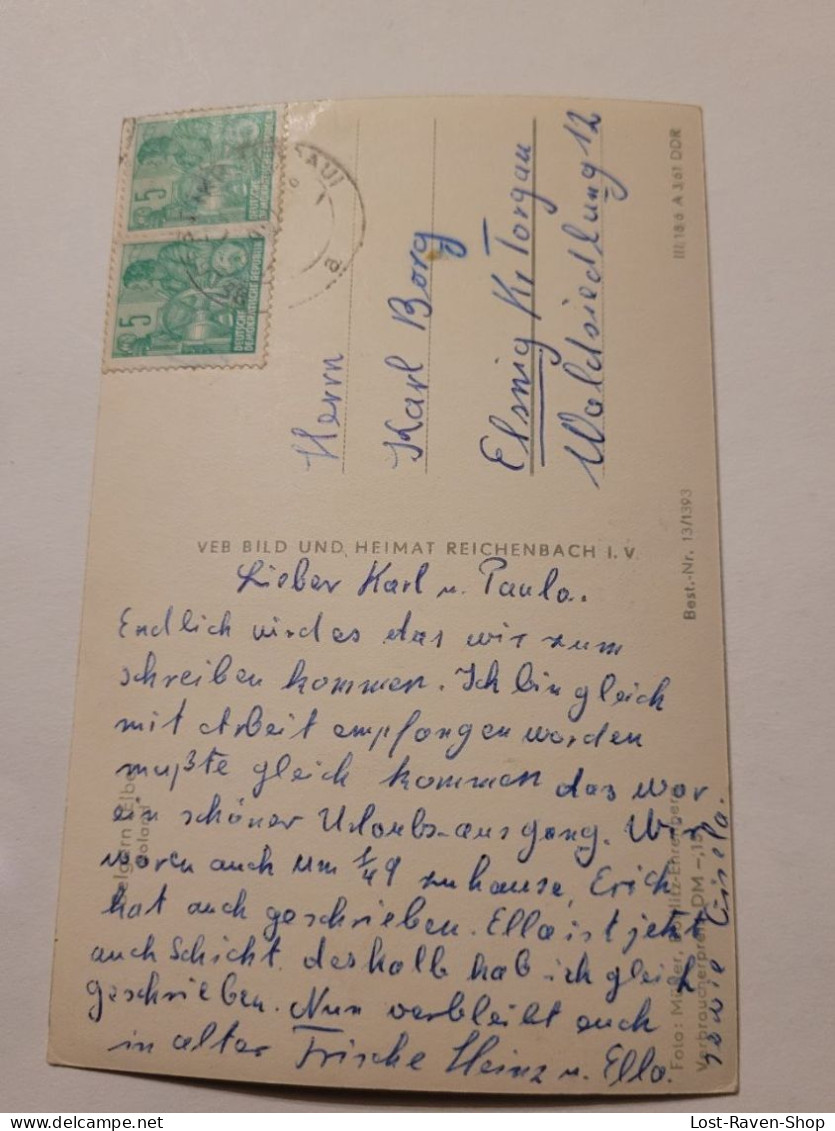 5
DEUTSCHE
DEMOKRATISCHE REPUBLIK
5
DEUTSCHE
DEMOKRATISCHE REPUBLIK
a
Herrn
Karl Borg
Elsnig Kr. Torgau
Waldsiedlung 12
III/18/6 A 3/61 DDR
VEB BILD UND HEIMAT REICHENBACH I. V.
Best.-Nr. 13/1393
Lieber Karl u. Paula.
Endlich wird es das wir zum
schreiben kommen. Ich bin gleich
mit Arbeit empfangen worden
mußte gleich kommen das war
ein schöner Urlaubs-ausgang. Wir
waren auch um 1/4 9 zuhause, Erich
hat auch geschrieben. Ella ist jetzt
auch Schicht, deshalb hab ich gleich
geschrieben. Nun verbleibt auch
in alter Frische Heinz u. Ella.
sowie Gisela.
Belgern Elbe
Roland
Foto: Müller,
Verbraucherpreis DM -,15
Lost-Raven-Shop